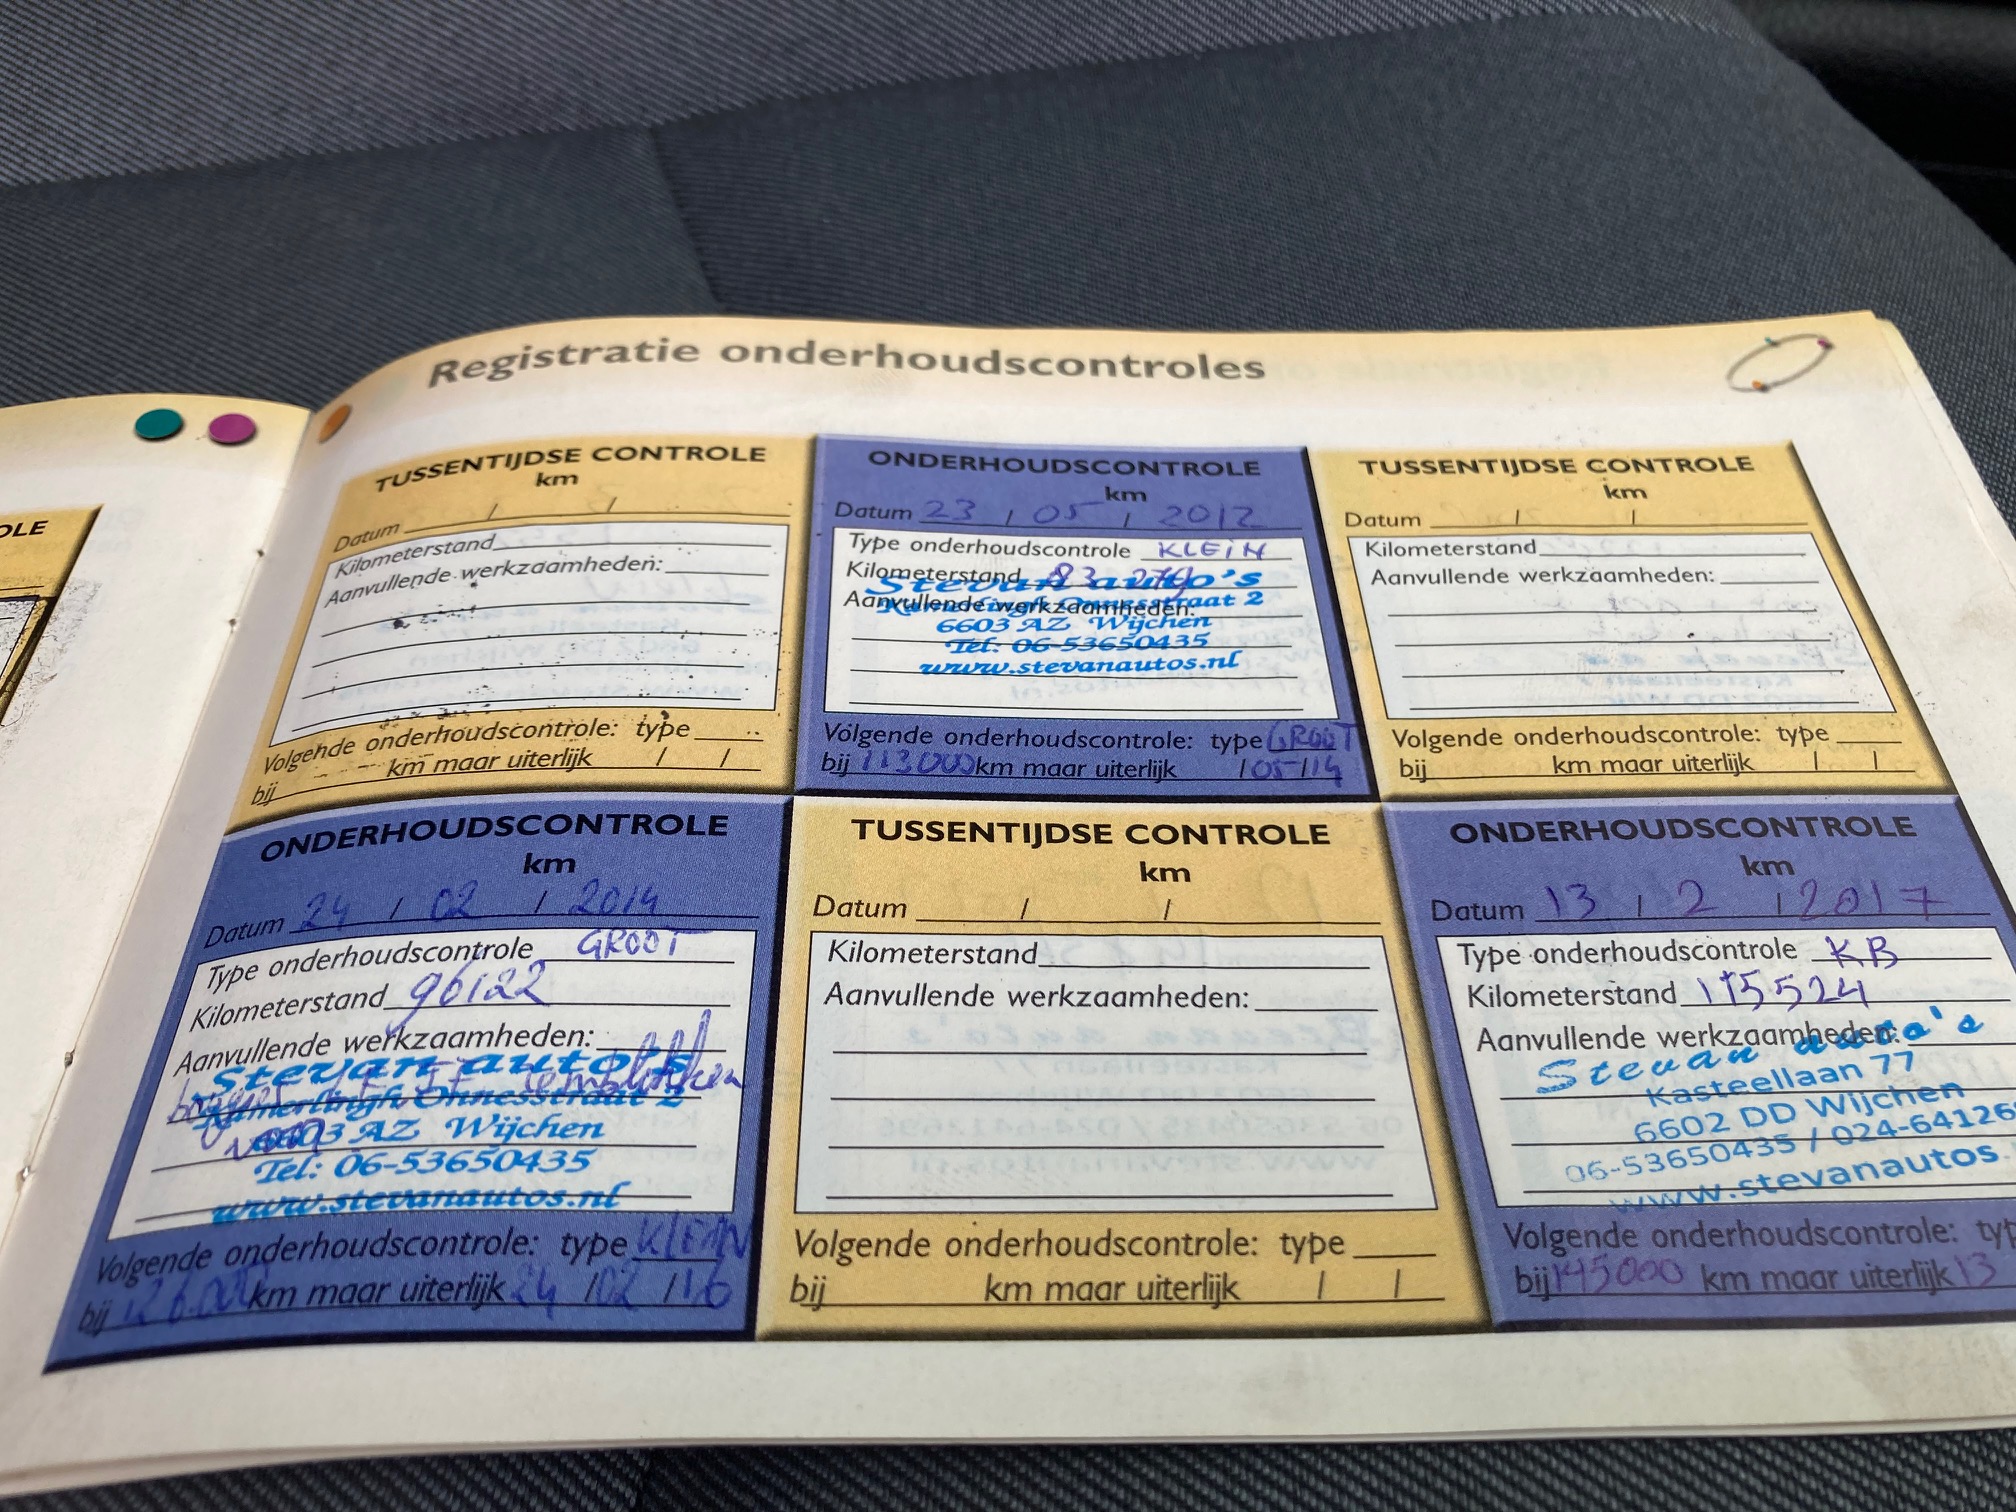 OLE
Registratie onderhoudscontroles
TUSSENTIJDSE CONTROLE
km
Datum / /
Kilometerstand
Aanvullende werkzaamheden:
Volgende onderhoudscontrole: type
bij km maar uiterlijk / /
ONDERHOUDSCONTROLE
km
Datum 23 / 05 / 2012
Type onderhoudscontrole KLEIN
Kilometerstand 83
Stevan auto's
Aanvullende werkzaamheden:
Kamerlingh Onnesstraat 2
6603 AZ Wijchen
Tel: 06-53650435
www.stevanautos.nl
Volgende onderhoudscontrole: type GROOT
bij 113000 km maar uiterlijk /05/14
TUSSENTIJDSE CONTROLE
km
Datum / /
Kilometerstand
Aanvullende werkzaamheden:
Volgende onderhoudscontrole: type
bij km maar uiterlijk / /
ONDERHOUDSCONTROLE
km
Datum 24 / 02 / 2014
Type onderhoudscontrole GROOT
Kilometerstand 96122
Aanvullende werkzaamheden:
Stevan auto's
Kamerlingh Onnesstraat 2
6603 AZ Wijchen
Tel: 06-53650435
www.stevanautos.nl
Volgende onderhoudscontrole: type KLEIN
bij 126.000 km maar uiterlijk 24 /02 /16
TUSSENTIJDSE CONTROLE
km
Datum / /
Kilometerstand
Aanvullende werkzaamheden:
Volgende onderhoudscontrole: type
bij km maar uiterlijk / /
ONDERHOUDSCONTROLE
km
Datum 13 / 2 / 2017
Type onderhoudscontrole KB
Kilometerstand 115524
Aanvullende werkzaamheden:
Stevan auto's
Kasteellaan 77
6602 DD Wijchen
06-53650435 / 024-64126
www.stevanautos.
Volgende onderhoudscontrole: typ
bij 145000 km maar uiterlijk 13